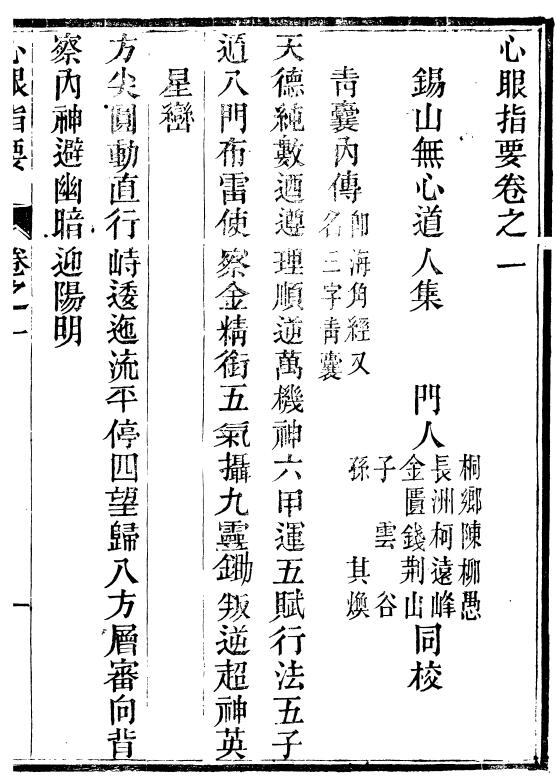 心眼指要卷之一
錫山無心道人集
門人
桐鄉陳柳愚
長洲柯遠峰
金匱錢荆山
子雲谷
孫其煥
同校
青囊內傳
卽海角經又
名三字青囊
天德純數迺遵理順逆萬機神六甲運五賦行法五子
遁八門布雷使察金精銜五氣攝九靈鋤叛逆超神英
星巒
方尖圓動直行峙逶迤流平停四望歸八方層審向背
察內神避幽暗迎陽明
心眼指要
卷之一
一